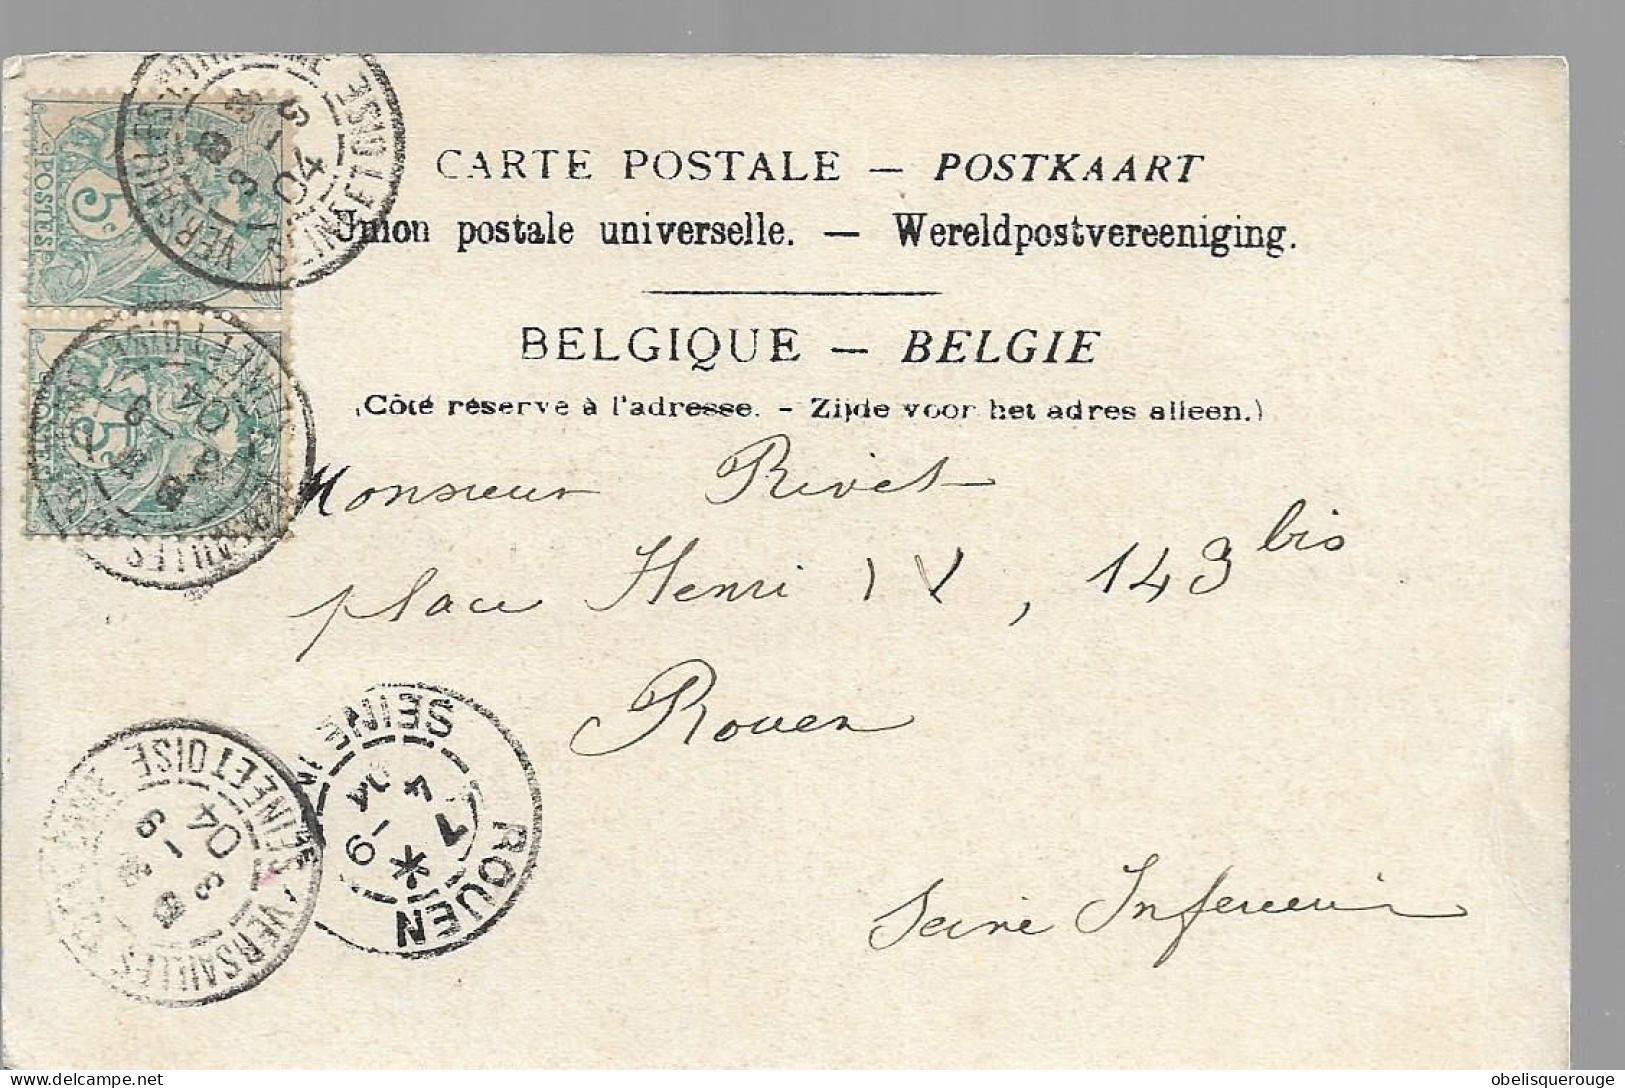 CARTE POSTALE — POSTKAART
Union postale universelle. — Wereldpostvereeniging.
BELGIQUE — BELGIE
(Côté réservé à l'adresse. - Zijde voor het adres alleen.)
POSTES
5c
POSTES
5c
SEINE ET OISE
VERSAILLES
3
9
04
Monsieur Rivet
place Henri IV, 143 bis
Rouen
Seine Inférieure
ROUEN
SEINE INRE
7
4-9
04
VERSAILLES
SEINE ET OISE
3
9
04
obelisquerouge